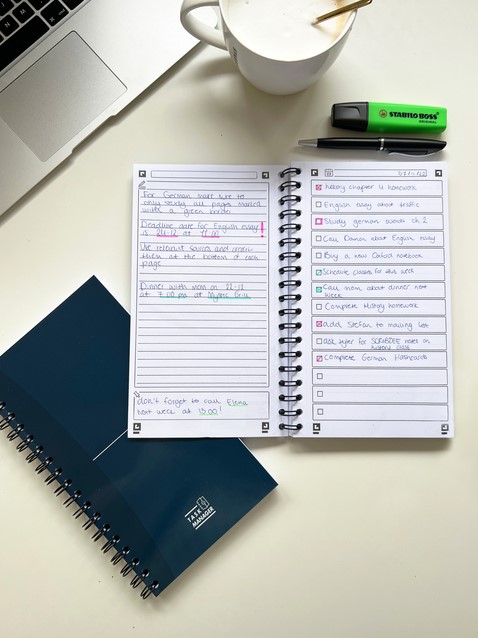 STABILO BOSS
ORIGINAL
For German make sure to
only study all pages marked
with a green border
Deadline date for English essay
is 24-12 at
Use relevant sources and
them at the bottom of each
page
Dinner with mom on 22-12
at 7:00 pm at Mystic Grill
don't forget to call Elena
next week at 13:00!
History chapter 4 homework
English essay about traffic
Study german words ch 2
Call Damon about English essay
Buy a new Oxford notebook
Schedule classes for this week
Call mom about dinner next
week
Complete History homework
add Stefan to mailing list
ask tyler for SCRIBZEE notes on
history class
Complete German flashcards
TASK
MANAGER